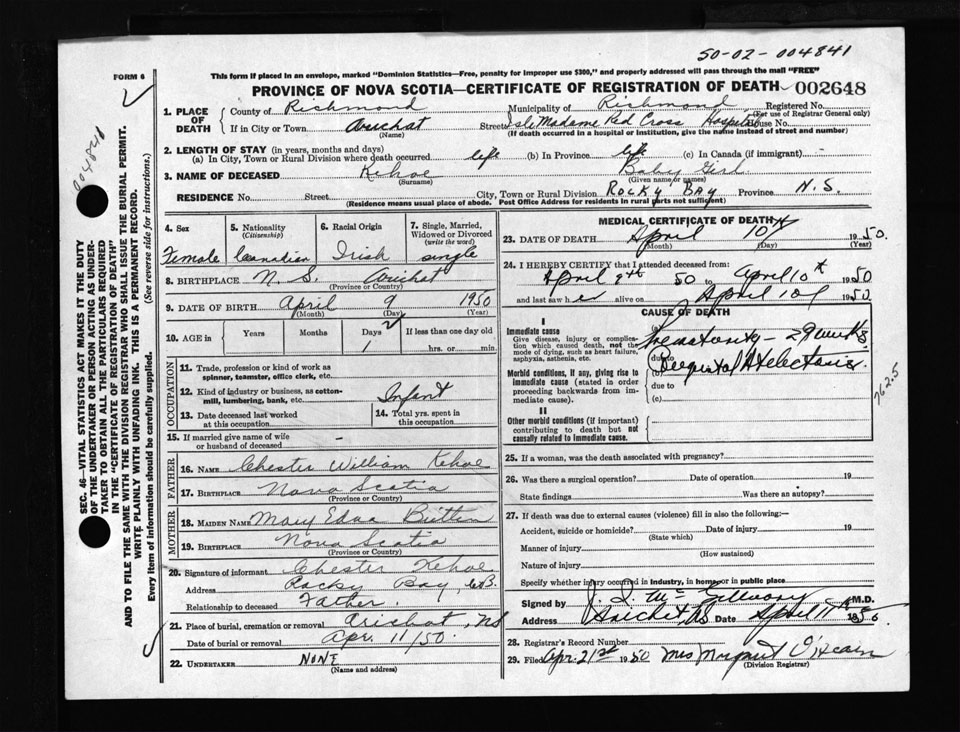 50-02-004841
FORM 6
This form if placed in an envelope, marked "Dominion Statistics—Free, penalty for improper use $300," and properly addressed will pass through the mail "FREE"
PROVINCE OF NOVA SCOTIA—CERTIFICATE OF REGISTRATION OF DEATH 002648
1. PLACE OF DEATH
County of Richmond Municipality of Richmond Registered No.
(For use of Registrar General only)
If in City or Town Arichat Street Isle Madame Red Cross Hospital House No.
(Name) (If death occurred in a hospital or institution, give the name instead of street and number)
2. LENGTH OF STAY (in years, months and days)
(a) In City, Town or Rural Division where death occurred life (b) In Province life (c) In Canada (if immigrant)
3. NAME OF DECEASED Kehoe Baby Girl
(Surname) (Given name or names)
RESIDENCE No. Street City, Town or Rural Division Rocky Bay Province N.S.
(Residence means usual place of abode. Post Office Address for residents in rural parts not sufficient)
4. Sex
Female
5. Nationality
(Citizenship)
Canadian
6. Racial Origin
Irish
7. Single, Married, Widowed or Divorced
(write the word)
single
8. BIRTHPLACE N.S. Arichat
(Province or Country)
9. DATE OF BIRTH April 9 1950
(Month) (Day) (Year)
10. AGE in Years Months Days If less than one day old
1 hrs. or min.
OCCUPATION
11. Trade, profession or kind of work as spinner, teamster, office clerk, etc.
12. Kind of industry or business, as cotton-mill, lumbering, bank, etc. Infant
13. Date deceased last worked at this occupation
14. Total yrs. spent in this occupation
15. If married give name of wife or husband of deceased -
FATHER
16. NAME Chester William Kehoe
17. BIRTHPLACE Nova Scotia
(Province or Country)
MOTHER
18. MAIDEN NAME Mary Edna
19. BIRTHPLACE Nova Scotia
(Province or Country)
20. Signature of informant Chester Kehoe
Address Rocky Bay, C.B.
Relationship to deceased Father.
21. Place of burial, cremation or removal Arichat, NS
Date of burial or removal Apr. 11/50.
22. UNDERTAKER NONE
(Name and address)
MEDICAL CERTIFICATE OF DEATH
23. DATE OF DEATH April 10th 1950.
(Month) (Day) (Year)
24. I HEREBY CERTIFY that I attended deceased from:
April 9th 50 to April 10th 1950
and last saw her alive on April 10 1950.
CAUSE OF DEATH
I
Immediate cause
Give disease, injury or complication which caused death, not the mode of dying, such as heart failure, asphyxia, asthenia, etc.
(a) Prematurity - 29 weeks
due to
Morbid conditions, if any, giving rise to immediate cause (stated in order proceeding backwards from immediate cause).
(b) Congenital Atelectasis.
due to
(c)
II
Other morbid conditions (if important) contributing to death but not causally related to immediate cause.
762.5
25. If a woman, was the death associated with pregnancy?
26. Was there a surgical operation? Date of operation 19
State findings Was there an autopsy?
27. If death was due to external causes (violence) fill in also the following:—
Accident, suicide or homicide? Date of injury 19
(State which)
Manner of injury
(How sustained)
Nature of injury
Specify whether injury occurred in industry, in home or in public place
Signed by M.D.
Address Arichat, NS Date April 1950
28. Registrar's Record Number
29. Filed Apr. 21st 1950 Mrs Margaret O'Hearn
(Division Registrar)
004841
SEC. 46—VITAL STATISTICS ACT MAKES IT THE DUTY
OF THE UNDERTAKER OR PERSON ACTING AS UNDER-
TAKER TO OBTAIN ALL THE PARTICULARS REQUIRED
IN THE "CERTIFICATE OF REGISTRATION OF DEATH"
AND TO FILE THE SAME WITH THE DIVISION REGISTRAR WHO SHALL ISSUE THE BURIAL PERMIT.
WRITE PLAINLY WITH UNFADING INK. THIS IS A PERMANENT RECORD.
Every item of information should be carefully supplied. (See reverse side for instructions.)